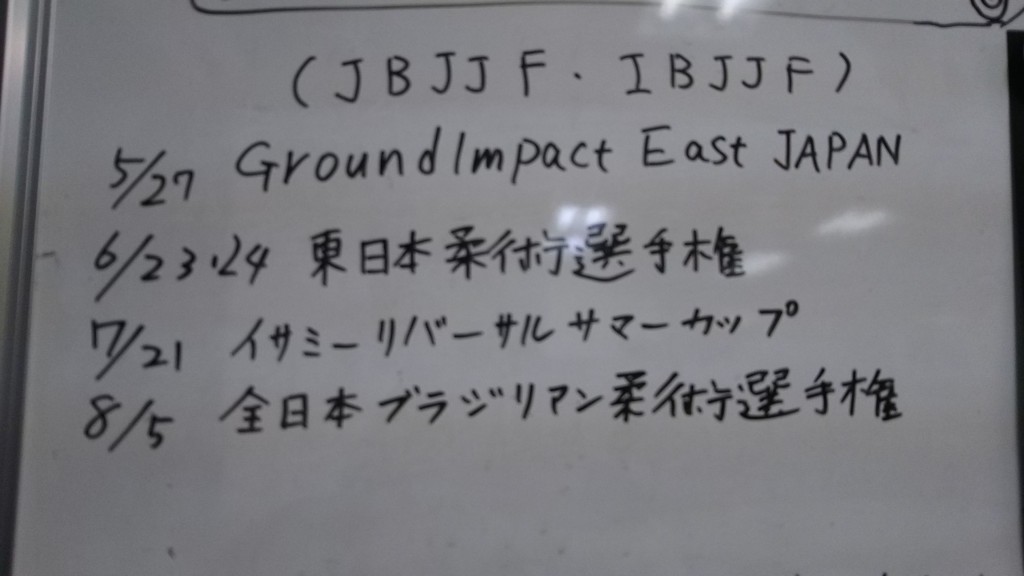 (JBJJF・IBJJF)
5/27 GroundImpact East JAPAN
6/23・24 東日本柔術選手権
7/21 イサミーリバーサルサマーカップ
8/5 全日本ブラジリアン柔術選手権